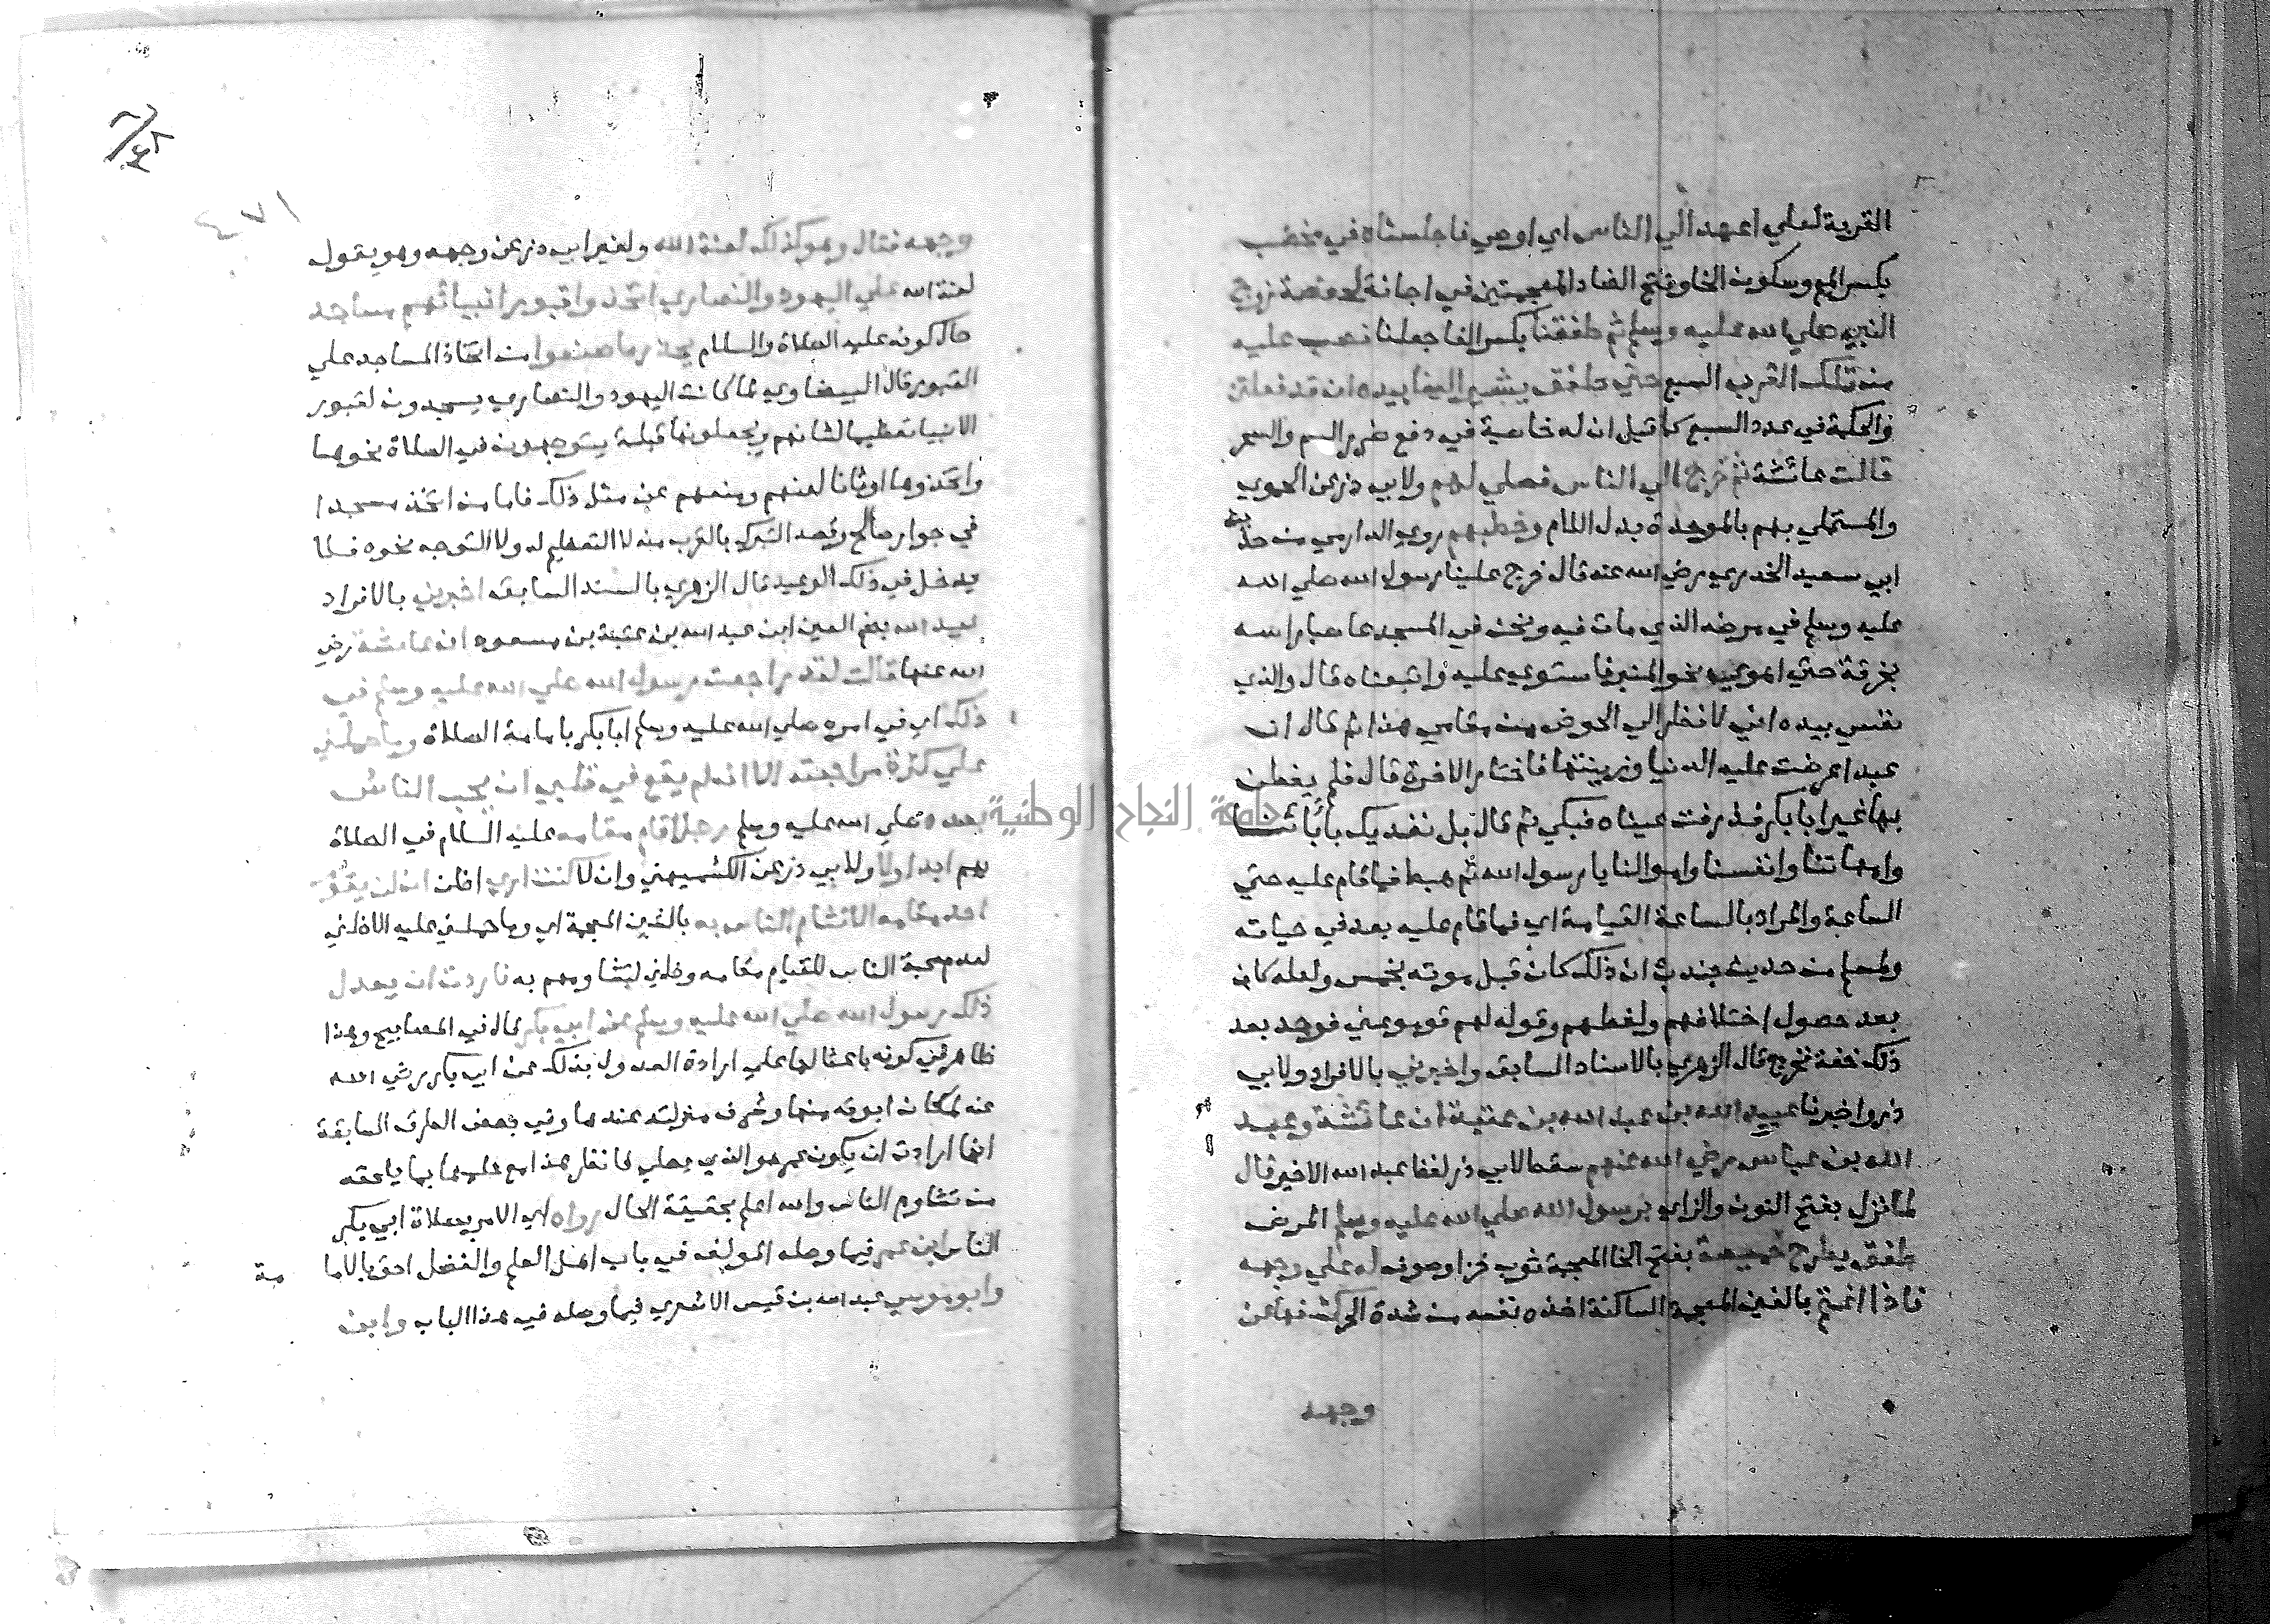 القربة لعلي اعهد الي الناس اي اوصي فاجلسناه في مخضب
بكسر الميم وسكون الخا وفتح الضاد المعجمتين في اجانة لحفصة زوج
النبي صلي الله عليه وسلم ثم طفقنا بكسر الفا جعلنا نصب عليه
من تلك القرب السبع حتي طفق يشير الينا بيده ان قد فعلتن
والحكمة في عدد السبع كما قيل ان له خاصية في دفع ضرر السم والسحر
قالت عائشة ثم خرج الي الناس فصلي لهم ولابي ذر عن الحموي
والمستملي بهم بالموحدة بدل اللام وخطبهم روي الدارمي من حديث
ابي سعيد الخدري رضي الله عنه قال خرج علينا رسول الله صلي الله
عليه وسلم في مرضه الذي مات فيه ونحن في المسجد عاصبا راسه
بخرقة حتي اهوي نحو المنبر فاستوي عليه واتبعناه قال والذي
نفسي بيده اني لانظر الي الحوض من مقامي هذا ثم قال ان
عبدا عرضت عليه الدنيا وزينتها فاختار الاخرة قال فلم يفطن
بها غير ابا بكر فذرفت عيناه فبكي ثم قال بل نفديك بابائنا
وامهاتنا وانفسنا واموالنا يا رسول الله ثم هبط فما قام عليه حتي
الساعة والمراد بالساعة القيامة اي فما قام عليه بعد في حياته
ولمسلم من حديث جندب ان ذلك كان قبل موته بخمس ولعله كان
بعد حصول اختلافهم ولغطهم وقوله لهم قوموا عني فوجد بعد
ذلك خفة فخرج قال الزهري بالاسناد السابق واخبرني بالافراد ولابي
ذر واخبرنا عبيد الله بن عبد الله بن عتبة ان عائشة وعبد
الله بن عباس رضي الله عنهم سقط لابي ذر لفظ عبد الله الاخير قال
لما نزل بفتح النون والزاي برسول الله صلي الله عليه وسلم المرض
طفق يطرح خميصة بفتح الخا المعجمة ثوب خز او صوف له علي وجهه
فاذا اغتم بالغين المعجمة الساكنة اخذه نفسه من شدة الحر كشفها عن
وجهه
٤٧١
وجهه فقال وهو كذلك لعنة الله ولغير ابي ذر عن وجهه وهو يقول
لعنة الله علي اليهود والنصاري اتخذوا قبور انبيائهم مساجد
حال كونه عليه الصلاة والسلام يحذر ما صنعوا من اتخاذ المساجد علي
القبور قال البيضاوي لما كانت اليهود والنصاري يسجدون لقبور
الانبيا تعظيما لشانهم ويجعلونها قبلة يتوجهون في الصلاة نحوها
واتخذوها اوثانا لعنهم ومنعهم عن مثل ذلك فاما من اتخذ مسجدا
في جوار صالح وقصد التبرك بالقرب منه لا التعظيم له ولا التوجه نحوه فلا
يدخل في ذلك الوعيد قال الزهري بالسند السابق اخبرني بالافراد
عبيد الله بضم العين ابن عبد الله بن عتبة بن مسعود ان عائشة رضي
الله عنها قالت لقد راجعت رسول الله صلي الله عليه وسلم في
ذلك اي في امره صلي الله عليه وسلم ابا بكر بامامة الصلاة وما حملني
علي كثرة مراجعته الا انه لم يقع في قلبي ان يحب الناس
بعده صلي الله عليه وسلم رجلا قام مقامه عليه السلام في الصلاة
بهم ابدا ولا ولابي ذر عن الكشميهني وان لا كنت اري اظن انه لن يقوم
احد مقامه الا تشام الناس به بالغين المعجمة اي وما حملني عليه الا ظني
لعدم محبة الناس للقيام مقامه وظني لتشاومهم به فاردت ان يعدل
ذلك رسول الله صلي الله عليه وسلم عن ابي بكر قال في المصابيح وهذا
ظاهر في كونه باعثا لها علي ارادة العدول بذلك عن ابي بكر رضي الله
عنه لمكان ابوته منها وشرف منزلته عندها وفي بعض الطرق السابقة
انها ارادت ان يكون عمر هو الذي يصلي فانظر هذا مع علمها بما يلحقه
من تشاوم الناس والله اعلم بحقيقة الحال رواه اي الامر بصلاة ابي بكر
الناس ابن عمر فيما وصله المولف في باب اهل العلم والفضل احق بالاما مة
وابو موسي عبد الله بن قيس الاشعري فيما وصله في هذا الباب وابن
جامعة النجاح الوطنية